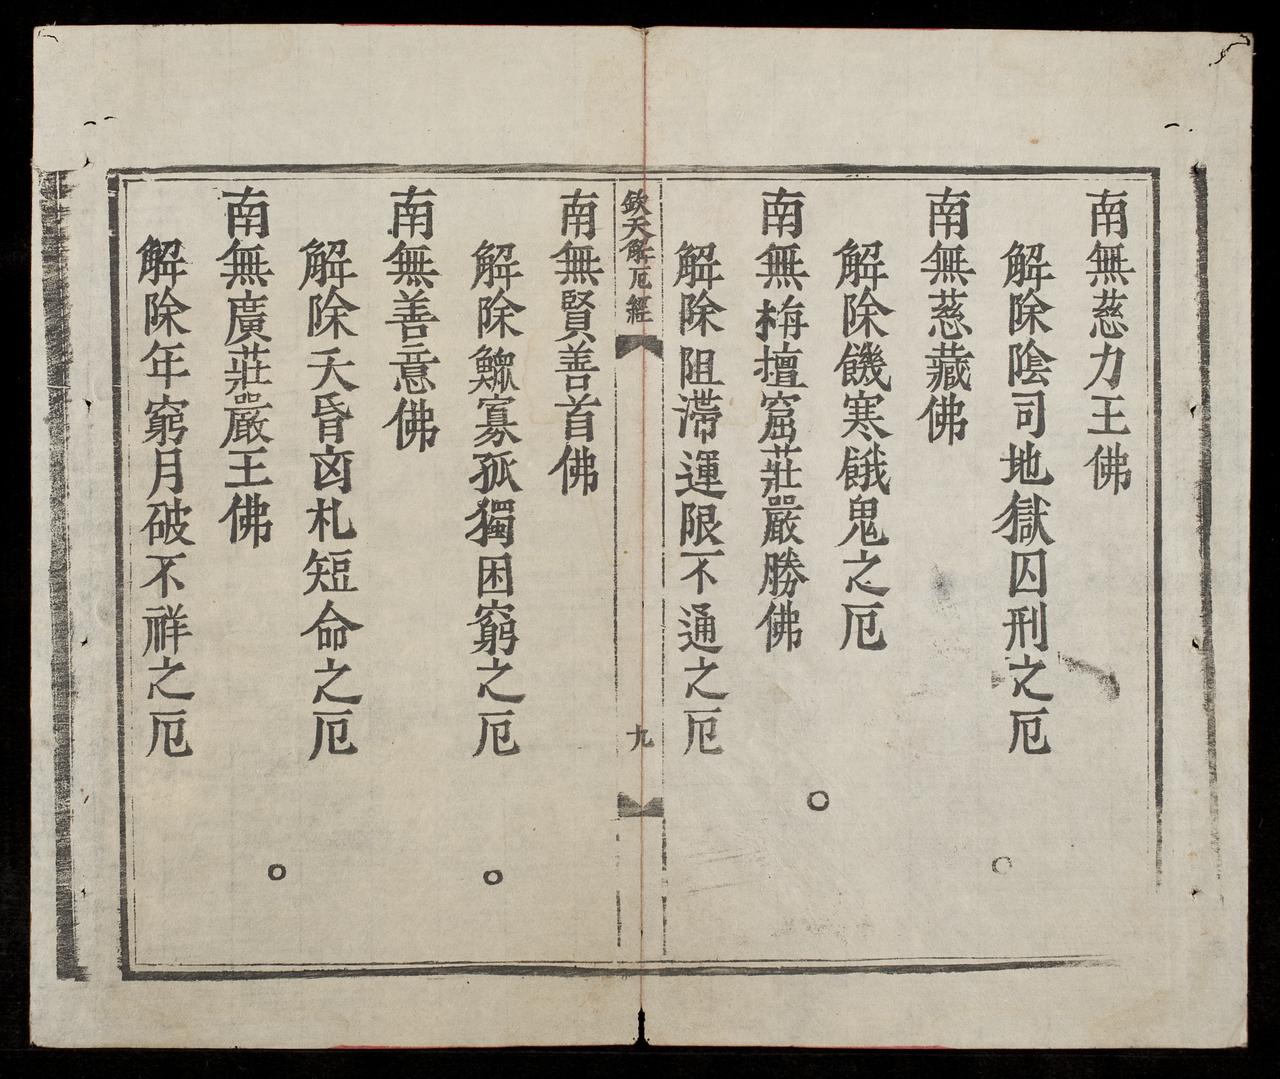 南無慈力王佛
解除陰司地獄囚刑之厄
南無慈藏佛
解除饑寒餓鬼之厄
南無栴壇窟莊嚴勝佛
解除阻滯運限不通之厄
欽天解厄經
九
南無賢善首佛
解除鰥寡孤獨困窮之厄
南無善意佛
解除夭昏凶札短命之厄
南無廣莊嚴王佛
解除年窮月破不祥之厄